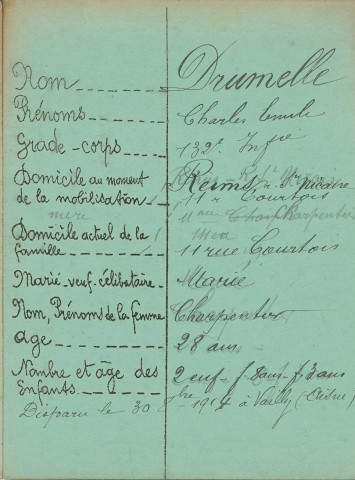 Nom _ _ _ _ _ Drumelle
Prénoms _ _ _ _ Charles Emile
Grade - corps _ _ _ 132e Infie
Domicile au moment Reims r. St Nicaise
de la mobilisation 11 r Courtois
mère 11 rue Charpentier
Domicile actuel de la
famille _ _ _ 11 rue Courtois
Marié _ veuf _ célibataire _ Marié
Nom, Prénoms de la femme Charpentier
age _ _ _ _ _ 28 ans
Nombre et âge des 2 enf - f. 8 ans - f. 3 ans
Enfants _ _ _ _
Disparu le 30 8bre 1914 à Vailly (Aisne)